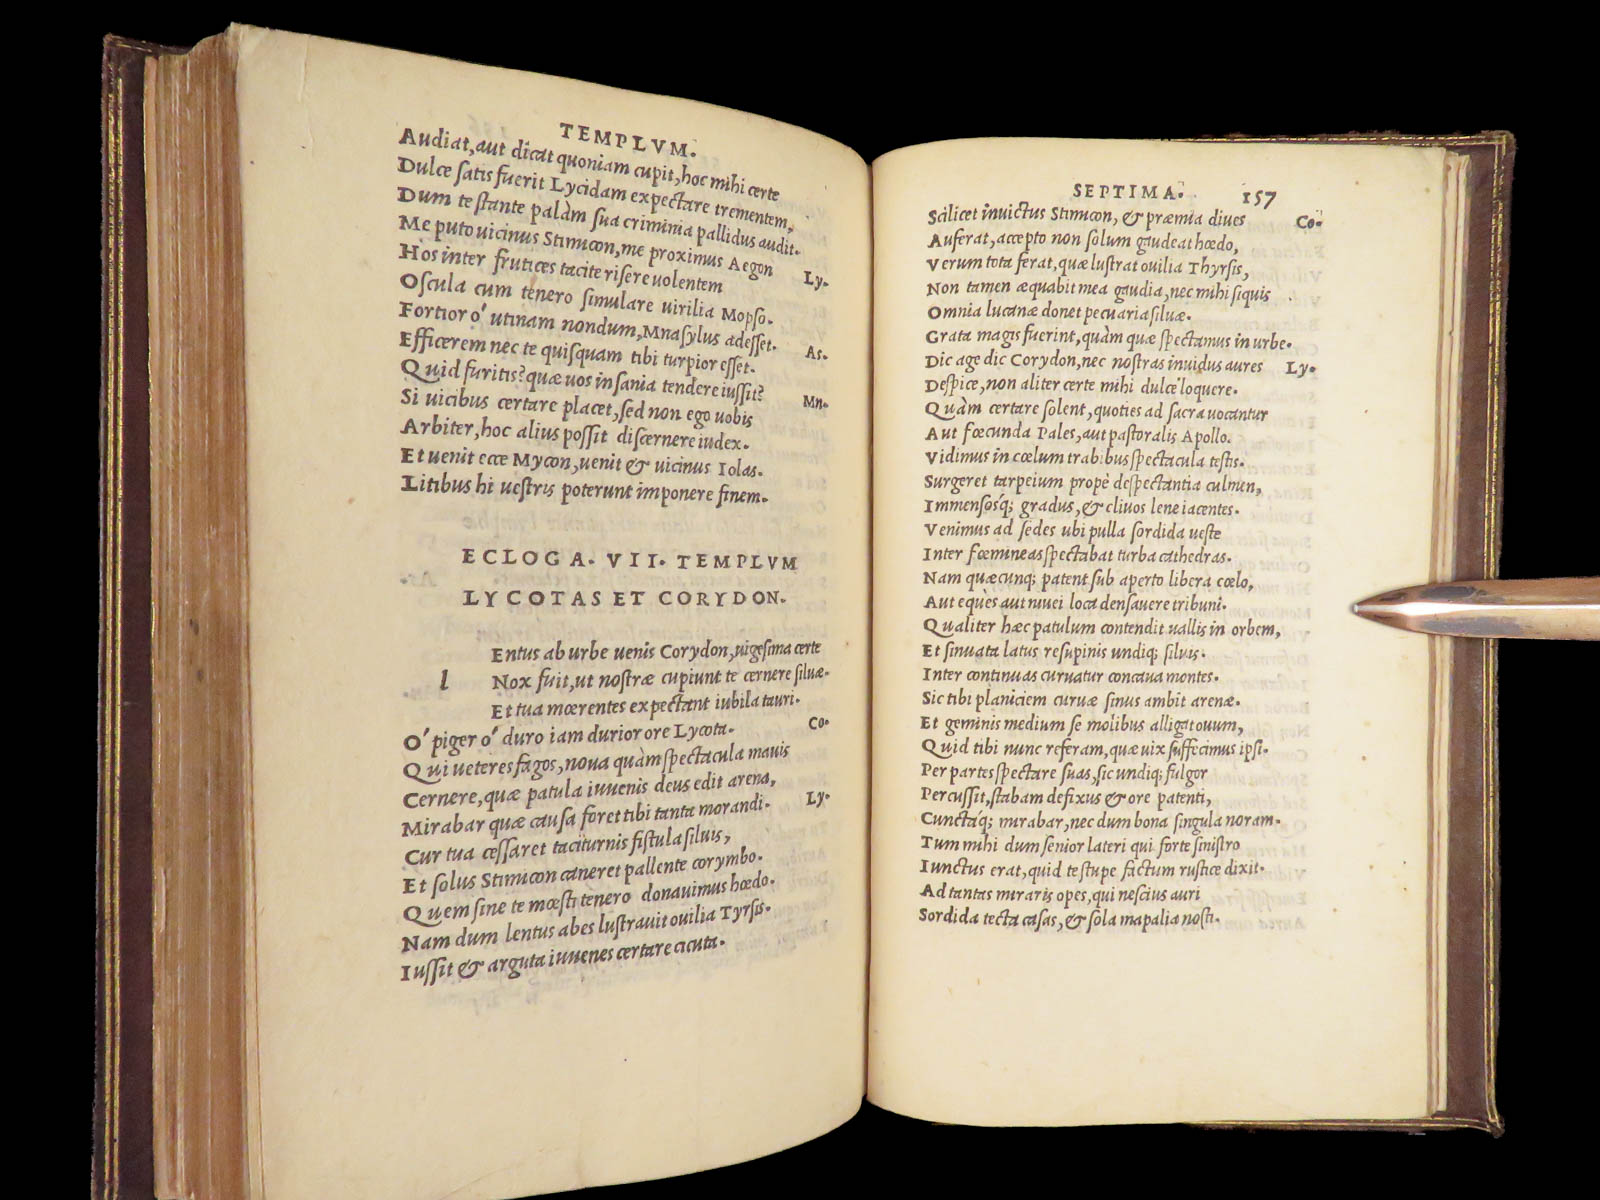 TEMPLVM.
Audiat, aut dicat quoniam cupit, hoc mihi certe
Dulce satis fuerit Lycidam expectare trementem,
Dum te stante palàm sua criminia pallidus audit.
Me puto uicinus Stimicon, me proximus Aegon Ly.
Hos inter frutices tacite risere uolentem
Oscula cum tenero simulare uirilia Mopso.
Fortior o' utinam nondum, Mnasylus adesset. As.
Efficerem nec te quisquam tibi turpior esset.
Quid furitis? quæ uos insania tendere iussit? Mn.
Si uicibus certare placet, sed non ego uobis
Arbiter, hoc alius possit discernere iudex.
Et uenit ecce Mycon, uenit & uicinus Iolas.
Litibus hi uestris poterunt imponere finem.
ECLOGA. VII. TEMPLVM
LYCOTAS ET CORYDON.
l Entus ab urbe uenis Corydon, uigesima certe
Nox fuit, ut nostræ cupiunt te cernere siluæ.
Et tua mœrentes expectant iubila tauri.
O' piger o' duro iam durior ore Lycota. Co.
Qui ueteres fagos, noua quàm spectacula mauis
Cernere, quæ patula iuuenis deus edit arena,
Mirabar quæ causa foret tibi tanta morandi. Ly.
Cur tua cessaret taciturnis fistula siluis,
Et solus Stimicon caneret pallente corymbo.
Quem sine te mœsti tenero donauimus hœdo.
Nam dum lentus abes lustrauit ouilia Tyrsis.
Iussit & arguta iuuenes certare cicuta.
SEPTIMA. 157
Scilicet inuictus Stimicon, & præmia diues Co.
Auferat, accepto non solum gaudeat hœdo,
Verum tota ferat, quæ lustrat ouilia Thyrsis,
Non tamen æquabit mea gaudia, nec mihi siquis
Omnia lucanæ donet pecuaria siluæ.
Grata magis fuerint, quàm quæ spectamus in urbe.
Dic age dic Corydon, nec nostras inuidus aures Ly.
Despice, non aliter certe mihi dulce loquere.
Quàm certare solent, quoties ad sacra uocantur
Aut fœcunda Pales, aut pastoralis Apollo.
Vidimus in cœlum trabibus spectacula testis.
Surgeret tarpeium propè despectantia culmen,
Immensosq; gradus, & cliuos lene iacentes.
Venimus ad sedes ubi pulla sordida ueste
Inter fœmineas spectabat turba cathedras.
Nam quæcunq; patent sub aperto libera cœlo,
Aut eques aut niuei loca densauere tribuni.
Qualiter hæc patulum contendit uallis in orbem,
Et sinuata latus resupinis undiq; siluis.
Inter continuas curuatur concaua montes.
Sic tibi planiciem curuæ sinus ambit arenæ.
Et geminis medium se molibus alligat ouum,
Quid tibi nunc referam, quæ uix suffecimus ipsi.
Per partes spectare suas, sic undiq; fulgor
Percussit, stabam defixus & ore patenti,
Cunctaq; mirabar, nec dum bona singula noram.
Tum mihi dum senior lateri qui forte sinistro
Iunctus erat, quid te stupefactum rustice dixit.
Ad tantas miraris opes, qui nescius auri
Sordida tecta casas, & sola mapalia nosti.